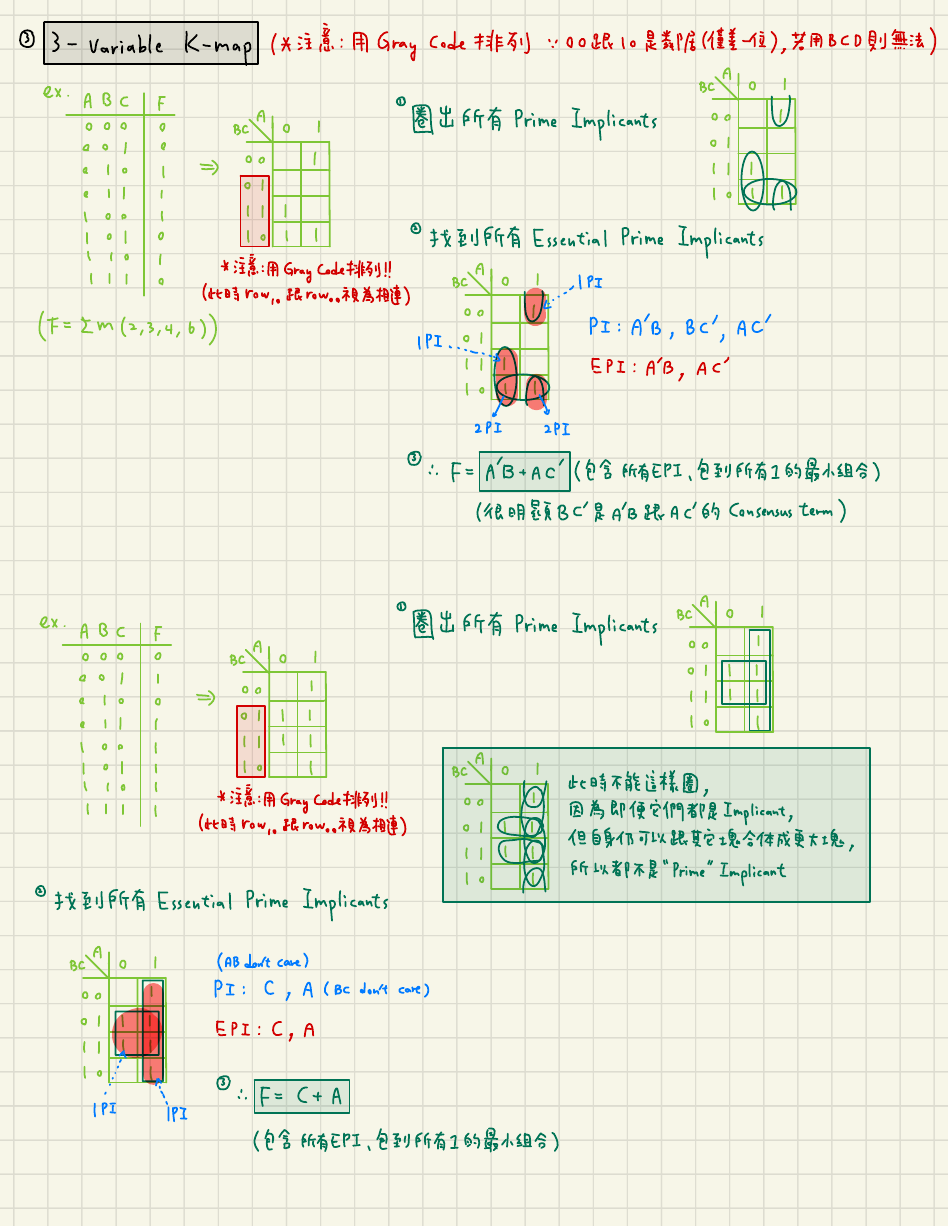 ③ 3-Variable K-map (*注意:用 Gray Code 排列 ∵00跟10是鄰居(僅差一位),若用BCD則無法)
ex.
A B C F
0 0 0 0
0 0 1 0
0 1 0 1
0 1 1 1
1 0 0 1
1 0 1 0
1 1 0 1
1 1 1 0
(F = Σm(2,3,4,6))
⇒
BC A 0 1
00 1
01
11 1
10 1 1
*注意:用 Gray Code 排列!!
(此時 row₁₀ 跟 row₀₀ 視為相連)
① 圈出所有 Prime Implicants
BC A 0 1
00 1
01
11 1
10 1 1
② 找到所有 Essential Prime Implicants
BC A 0 1
00 1
01
11 1
10 1 1
1PI
1PI
2PI 2PI
PI: A'B, BC', AC'
EPI: A'B, AC'
③ ∴ F = A'B + AC' (包含所有EPI、包到所有1的最小組合)
(很明顯BC'是A'B跟AC'的 Consensus term)
ex.
A B C F
0 0 0 0
0 0 1 1
0 1 0 0
0 1 1 1
1 0 0 1
1 0 1 1
1 1 0 1
1 1 1 1
⇒
BC A 0 1
00 1
01 1 1
11 1 1
10 1
*注意:用 Gray Code 排列!!
(此時 row₁₀ 跟 row₀₀ 視為相連)
① 圈出所有 Prime Implicants
BC A 0 1
00 1
01 1 1
11 1 1
10 1
BC A 0 1
00 1
01 1 1
11 1 1
10 1
此時不能這樣圈,
因為即便它們都是Implicant,
但自身仍可以跟其它塊合体成更大塊,
所以都不是"Prime" Implicant
② 找到所有 Essential Prime Implicants
BC A 0 1
00 1
01 1 1
11 1 1
10 1
1PI 1PI
(AB don't care)
PI: C, A (BC don't care)
EPI: C, A
③ ∴ F = C + A
(包含所有EPI、包到所有1的最小組合)